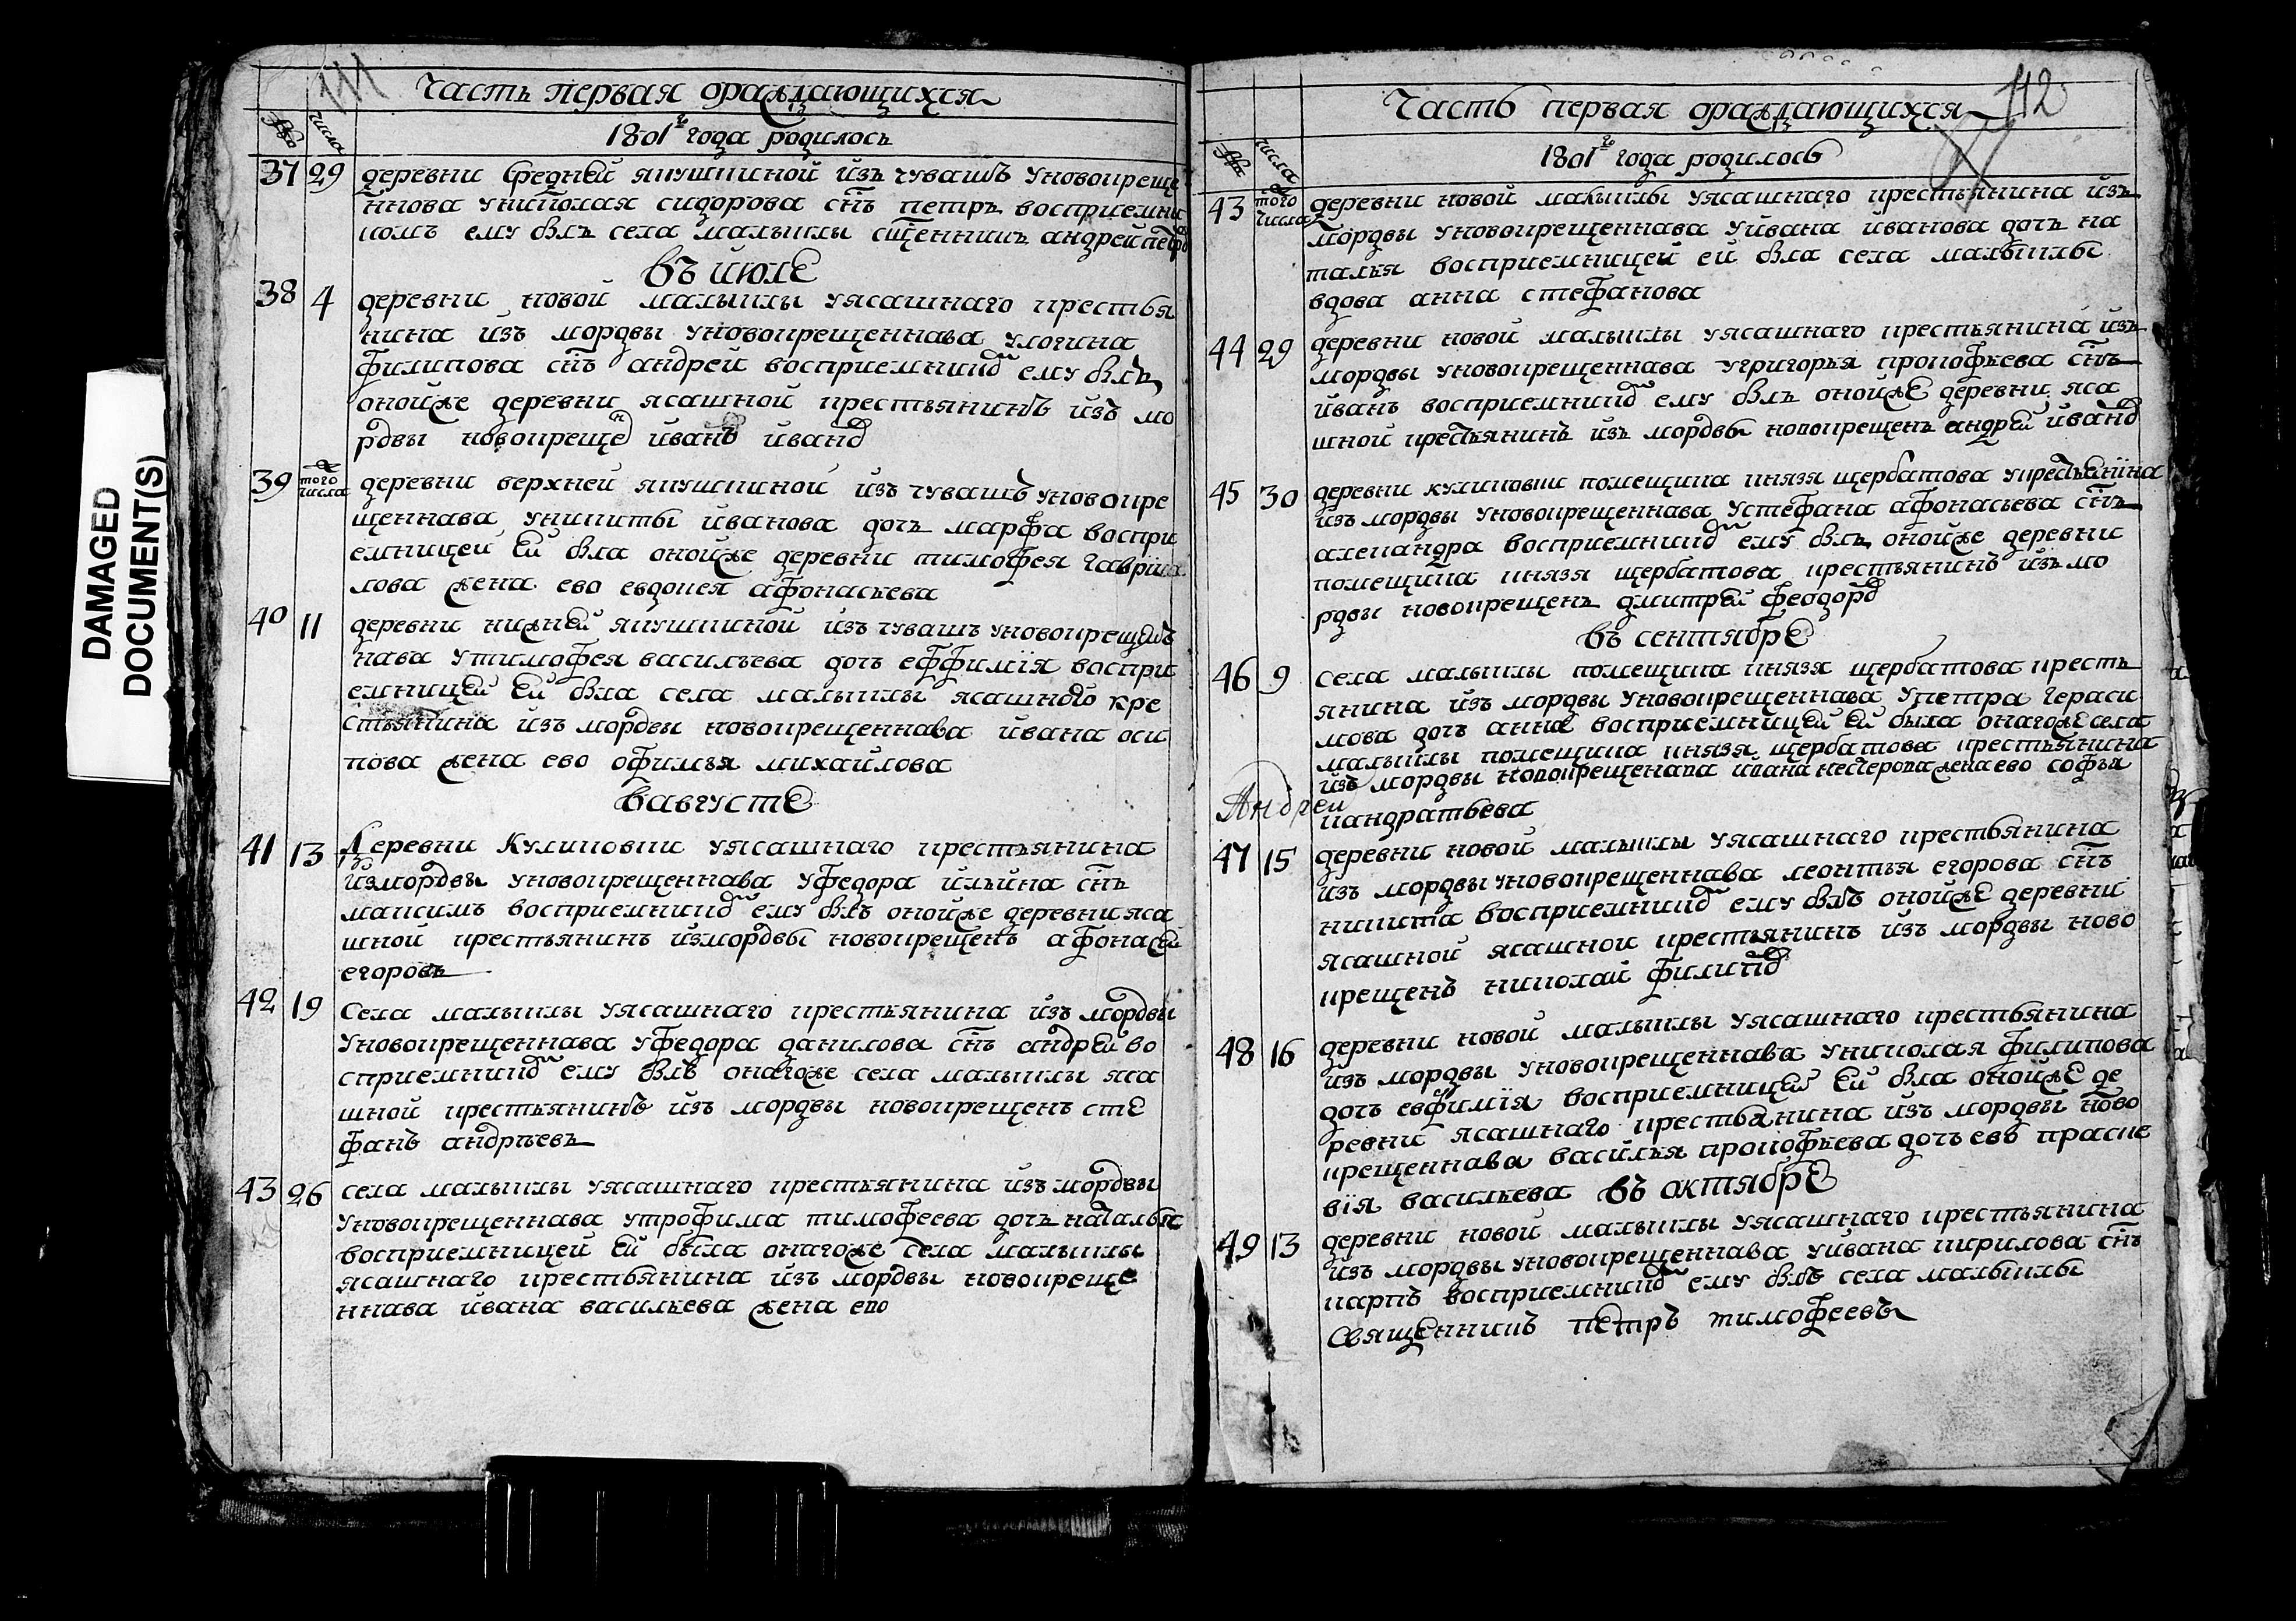 DAMAGED
DOCUMENT(S)
111
Часть первая ораждающихся
число
1801го года родилось
37 29 деревни Средней якушкиной изъ чувашъ уновокреще
ннова униколая сидорова снъ петръ восприемни
комъ ему былъ села малыклы сщенникъ андрей
въ июле
38 4 деревни новой малыклы уясашнаго крестья
нина изъ мордвы уновокрещеннава улогина
филипова снъ андрей восприемником ему былъ
онойже деревни ясашной крестьянинъ изъ мо
рдвы новокрещен иванъ иванов
39 того числа деревни верхней якушкиной изъ чувашъ уновокре
щеннава уникиты иванова дочь марфа воспри
емницей ей была онойже деревни тимофея гаврил
лова жена ево евдокея афонасьева
40 11 деревни нижней якушкиной изъ чувашъ уновокрещен
нава утимофея васильева дочь еффимія воспри
емницей ей была села малыклы ясашного кре
стьянина изъ мордвы новокрещеннава ивана оси
пова жена ево офимья михайлова
вавгусте
41 13 Деревни Куликовки уясашнаго крестьянина
измордвы уновокрещеннава уфедора ильина снъ
максимъ восприемником ему былъ онойже деревни яса
шной крестьянинъ измордвы новокрещенъ афонасей
егоровъ
42 19 Села малыклы уясашнаго крестьянина изъ мордвы
уновокрещеннава уфедора данилова снъ андрей во
сприемником ему былъ онагоже села малыклы яса
шной крестьянинъ изъ мордвы новокрещенъ сте
фанъ андреевъ
43 26 села малыклы уясашнаго крестьянина изъ мордвы
уновокрещеннава утрофима тимофеева дочь наталья
восприемницей ей была онагоже села малыклы
ясашнаго крестьянина изъ мордвы новокреще
ннава ивана васильева жена ево
112
Часть первая ораждающихся
числа
1801го года родилось
43 того числа деревни новой малыклы уясашнаго крестьянина изъ
мордвы уновокрещеннава уивана иванова дочь на
талья восприемницей ей была села малыклы
вдова анна стефанова
44 29 деревни новой малыклы уясашнаго крестьянина изъ
мордвы уновокрещеннава угригорья прокофьева снъ
иванъ восприемником ему былъ онойже деревни яса
шной крестьянинъ изъ мордвы новокрещенъ андрей иванов
45 30 деревни куликовки помещика князя щербатова укрестьенина
изъ мордвы уновокрещеннава устефана афонасьева снъ
алекандра восприемником ему былъ онойже деревни
помещика князя щербатова крестьянинъ изъ мо
рдвы новокрещенъ дмитрей феодоров
въ сентябре
46 9 Села малыклы помещика князя щербатова кресть
янина изъ мордвы уновокрещеннава упетра гераси
мова дочь анна восприемницей ей была онагоже села
малыклы помещика князя щербатова крестьянина
изъ мордвы новокрещеннава ивана нестерова жена ево софья
Андрей
кандратьева
47 15 деревни новой малыклы уясашнаго крестьянина
изъ мордвы уновокрещеннава леонтья егорова снъ
никита восприемником ему былъ онойже деревни
ясашной ясашной крестьянинъ изъ мордвы ново
крещенъ николай филипов
48 16 деревни новой малыклы уясашнаго крестьянина
изъ мордвы уновокрещеннава униколая филипова
дочь евфимія восприемницей ей была онойже де
ревни ясашнаго крестьянина изъ мордвы ново
крещеннава василья прокофьева дочь ево праске
вія васильева въ октябре
49 13 деревни новой малыклы уясашнаго крестьянина
изъ мордвы уновокрещеннава уивана кирилова снъ
карпъ восприемником ему былъ села малыклы
Священникъ петръ тимофеевъ